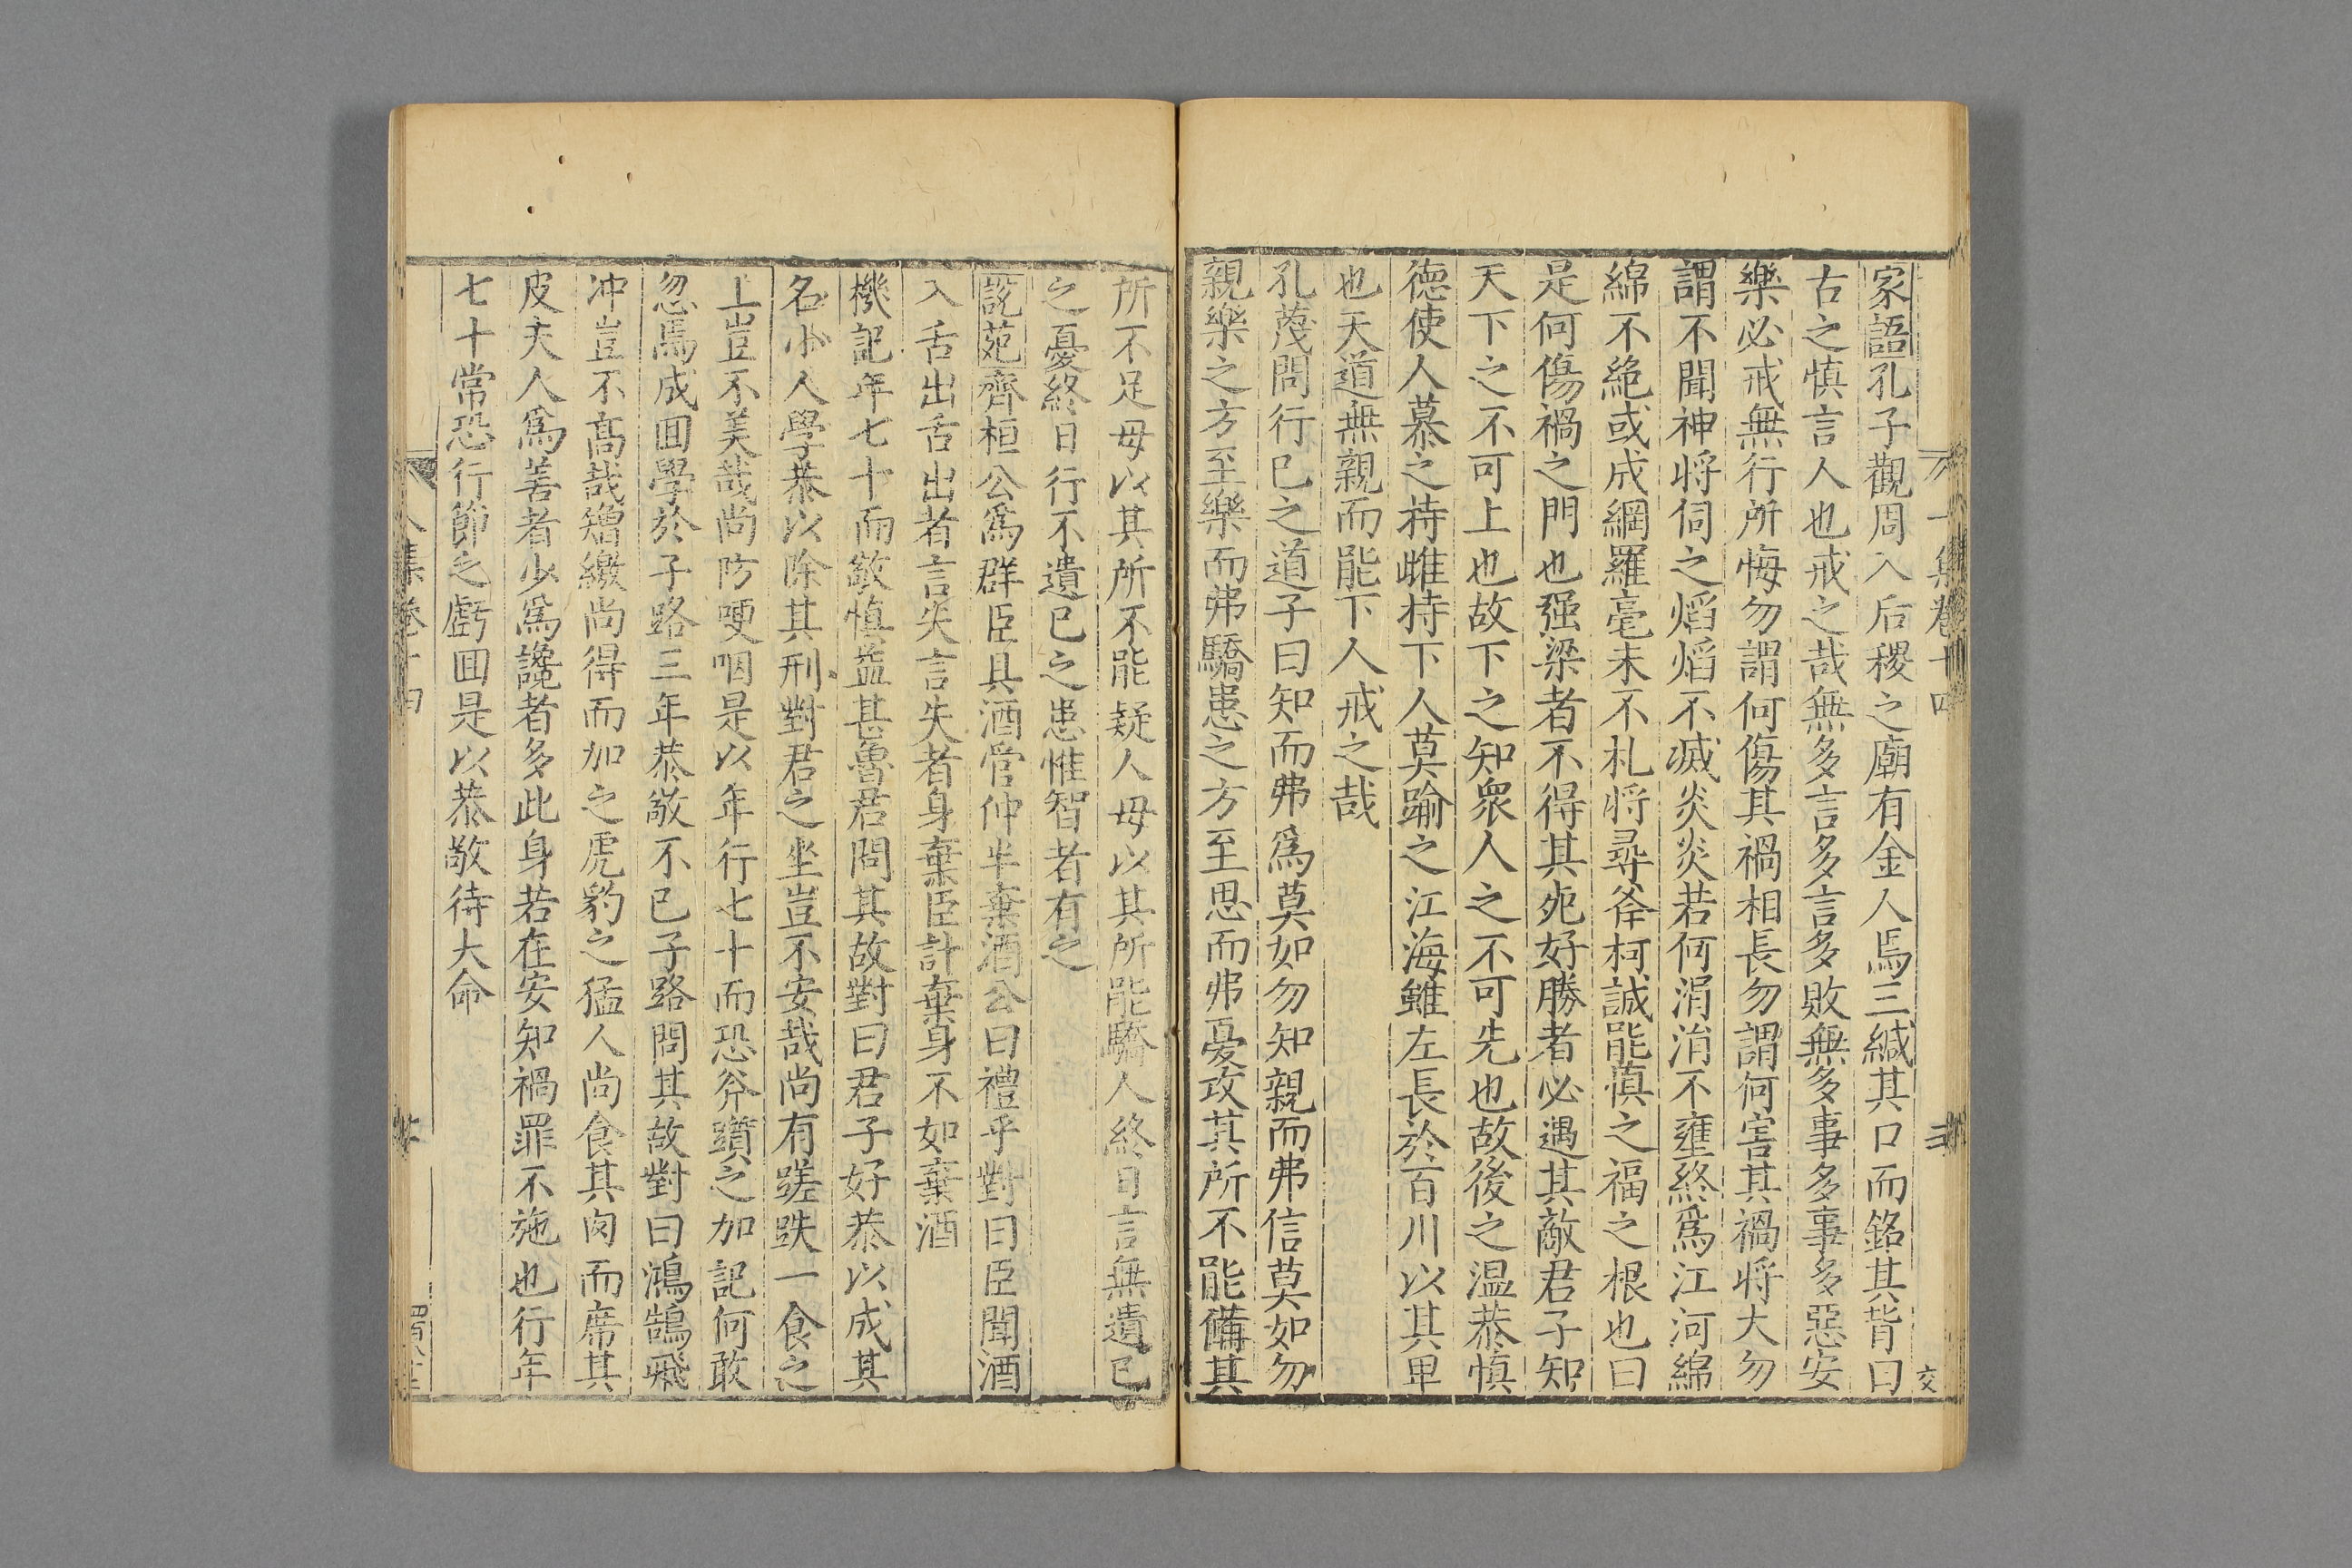 家語孔子觀周入后稷之廟有金人焉三緘其口而銘其背曰
古之慎言人也戒之哉無多言多言多敗無多事多事多惡安
樂必戒無行所悔勿謂何傷其禍相長勿謂何害其禍将大勿
謂不聞神将伺之焰焰不滅炎炎若何涓涓不壅終爲江河綿
綿不絶或成綱羅毫末不札将尋斧柯誠能慎之福之根也曰
是何傷禍之門也强梁者不得其死好勝者必遇其敵君子知
天下之不可上也故下之知衆人之不可先也故後之温恭慎
德使人慕之持雌持下人莫踰之江海雖左長於百川以其卑
也天道無親而能下人戒之哉
孔蔑問行已之道子曰知而弗爲莫如勿知親而弗信莫如勿
親樂之方至樂而弗驕患之方至思而弗憂攻其所不能備其
所不足毋以其所不能疑人毋以其所能驕人終日言無遺已
之憂終日行不遺已之患惟智者有之
說苑齊桓公爲群臣具酒管仲半棄酒公曰禮乎對曰臣聞酒
入舌出舌出者言失言失者身棄臣計棄身不如棄酒
機記年七十而敬慎益甚魯君問其故對曰君子好恭以成其
名小人學恭以除其刑對君之坐豈不安哉尚有蹉跌一食之
上豈不美哉尚防哽咽是以年行七十而恐斧躓之加記何敢
忽焉成回學於子路三年恭敬不已子路問其故對曰鴻鵠飛
冲豈不髙哉矰繳尚得而加之虎豹之猛人尚食其肉而席其
皮夫人爲善者少爲讒者多此身若在安知禍罪不施也行年
七十常恐行節之虧回是以恭敬待大命
集卷十四
交